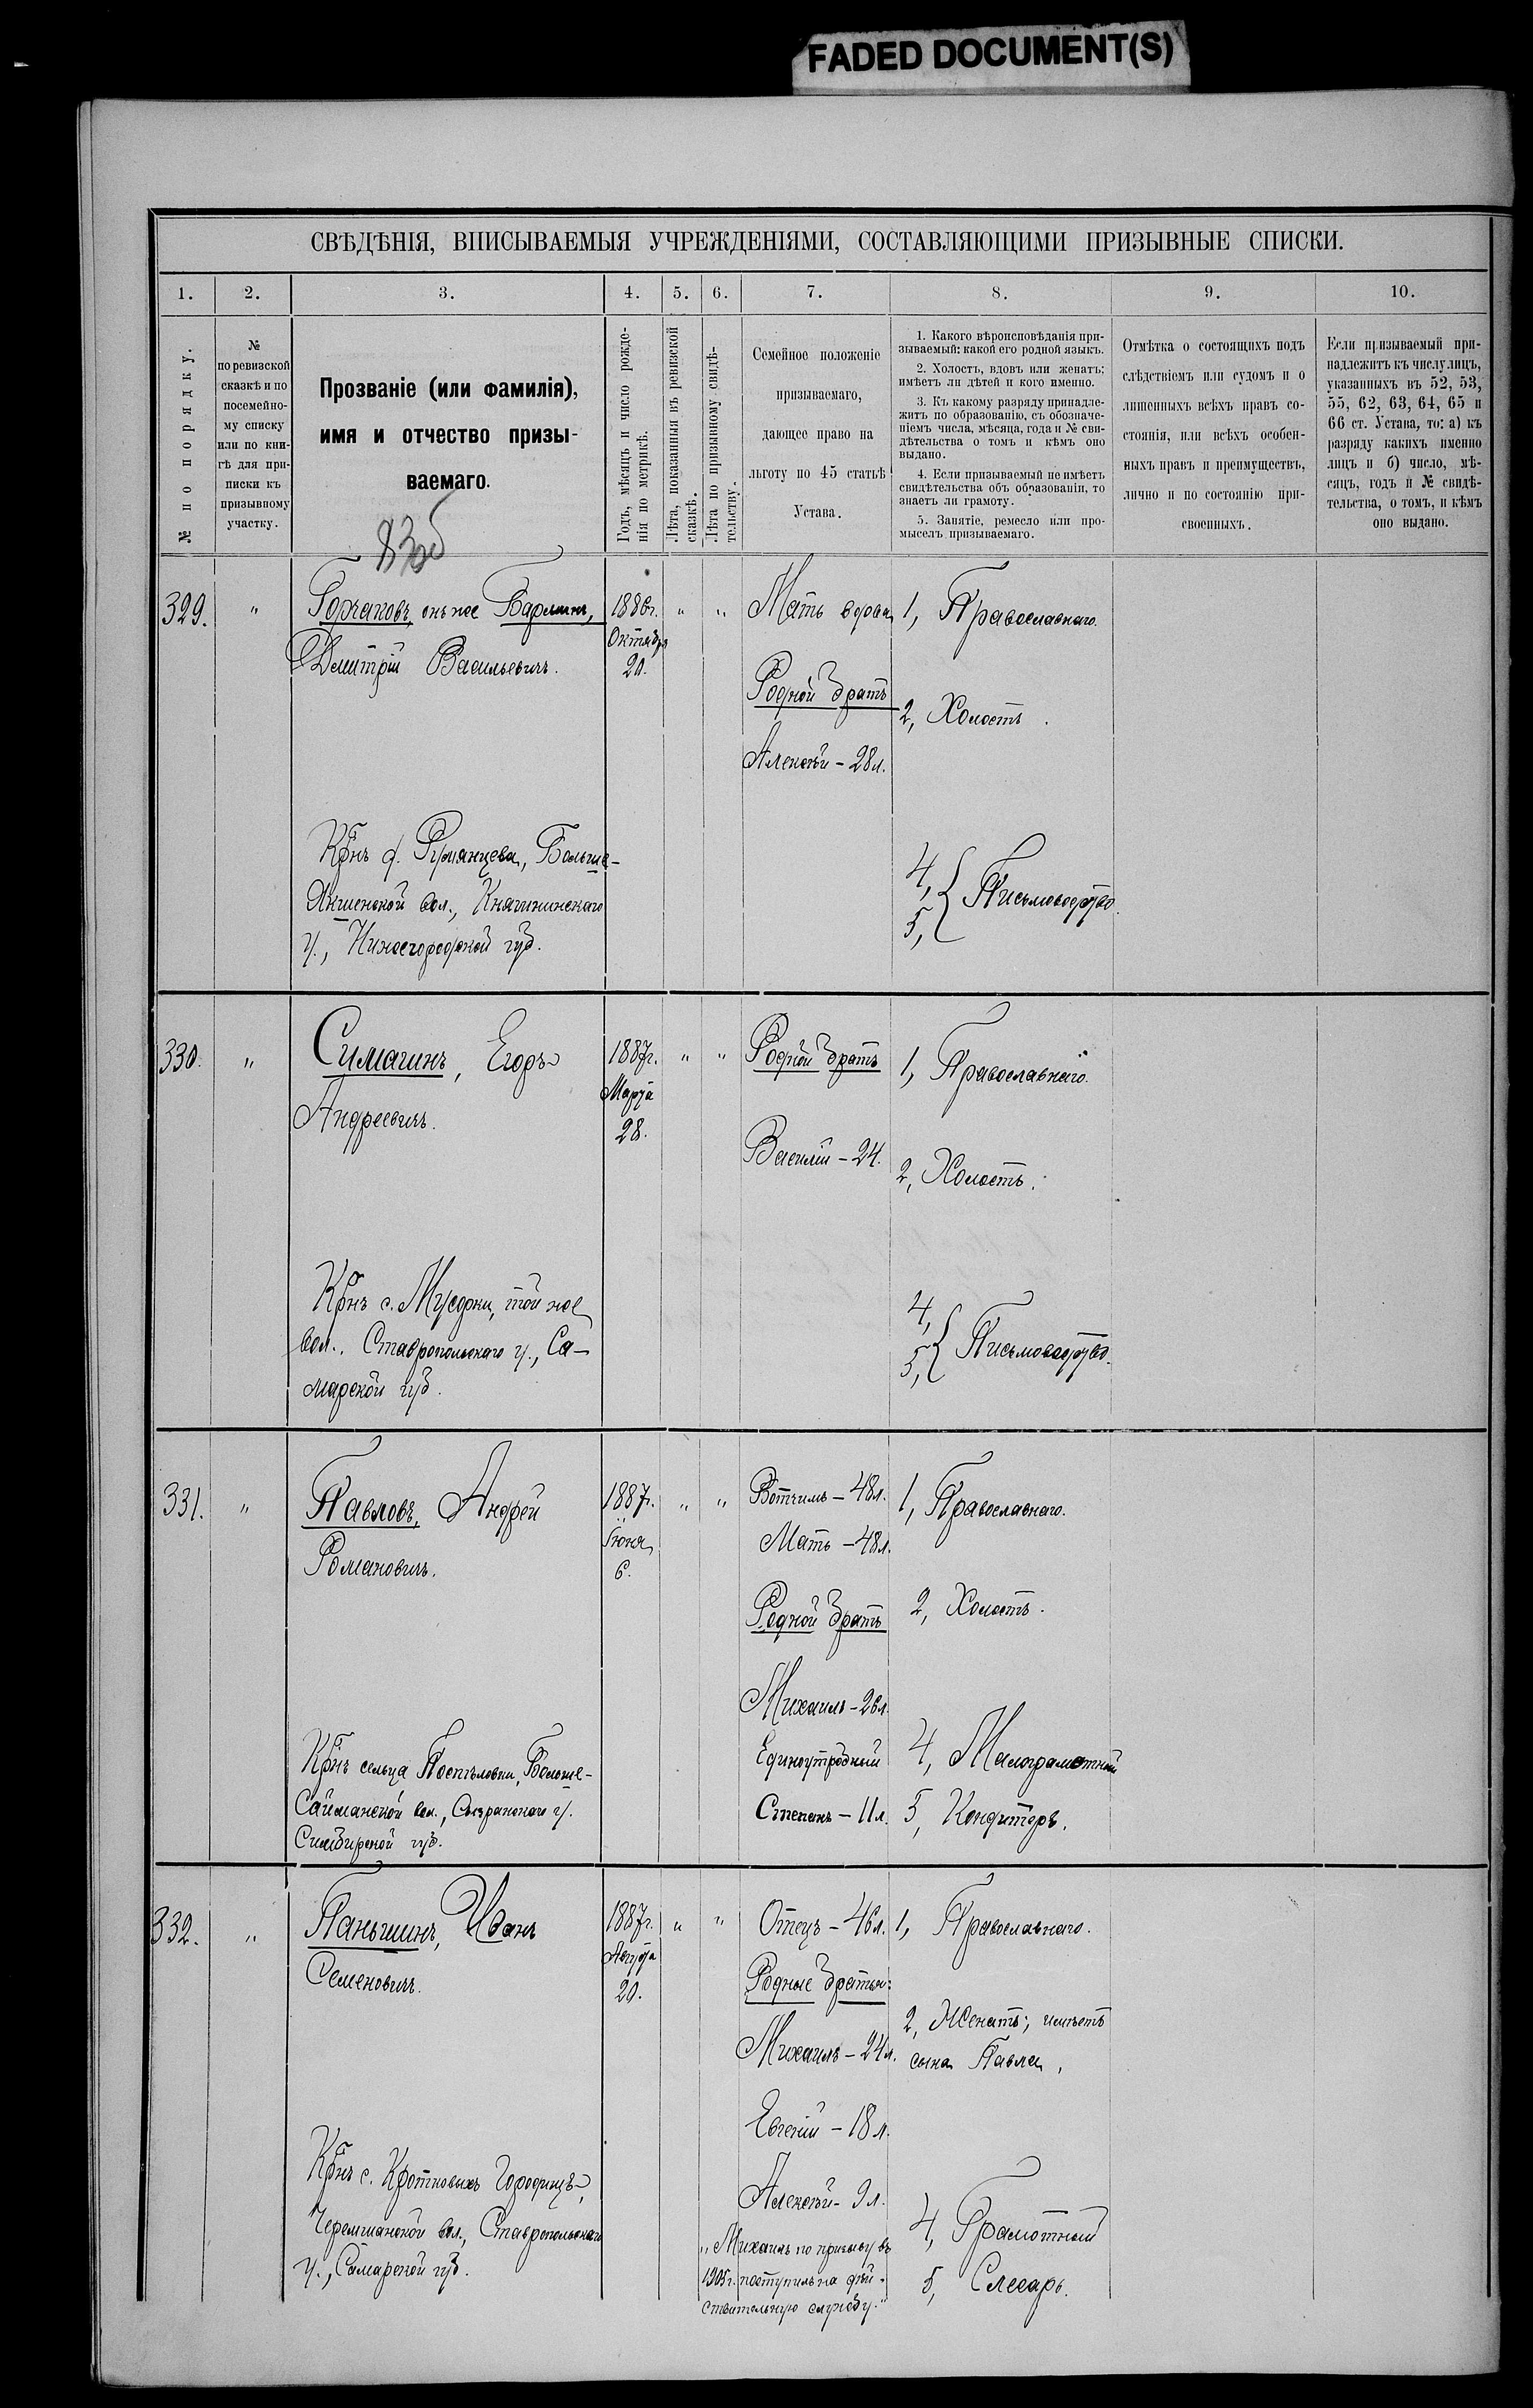 FADED DOCUMENT(S)
СВѢДѢНІЯ, ВПИСЫВАЕМЫЯ УЧРЕЖДЕНІЯМИ, СОСТАВЛЯЮЩИМИ ПРИЗЫВНЫЕ СПИСКИ.
1. 2. 3. 4. 5. 6. 7. 8. 9. 10.
№ по порядку.
№
по ревизской
сказкѣ и по
посемейно-
му списку
или по кни-
гѣ для при-
писки къ
призывному
участку.
Прозваніе (или фамилія),
имя и отчество призы-
ваемаго.
Годъ, мѣсяцъ и число рожде-
нія по метрикѣ.
Лѣта, показанныя въ ревизской
сказкѣ.
Лѣта по призывному свидѣ-
тельству.
Семейное положеніе
призываемаго,
дающее право на
льготу по 45 статьѣ
Устава.
1. Какого вѣроисповѣданія при-
зываемый: какой его родной языкъ.
2. Холостъ, вдовъ или женатъ;
имѣетъ ли дѣтей и кого именно.
3. Къ какому разряду принадле-
житъ по образованію, съ обозначе-
ніемъ числа, мѣсяца, года и № сви-
дѣтельства о томъ и кѣмъ оно
выдано.
4. Если призываемый не имѣетъ
свидѣтельства объ образованіи, то
знаетъ ли грамоту.
5. Занятіе, ремесло или про-
мыселъ призываемаго.
Отмѣтка о состоящихъ подъ
слѣдствіемъ или судомъ и о
лишенныхъ всѣхъ правъ со-
стоянія, или всѣхъ особен-
ныхъ правъ и преимуществъ,
лично и по состоянію при-
своенныхъ.
Если призываемый при-
надлежитъ къ числу лицъ,
указанныхъ въ 52, 53,
55, 62, 63, 64, 65 и
66 ст. Устава, то: а) къ
разряду какихъ именно
лицъ и б) число, мѣ-
сяцъ, годъ и № свидѣ-
тельства, о томъ, и кѣмъ
оно выдано.
329. "
Горчаковъ, онъ же
Дмитрій Васильевичъ.
1886г.
Октября
20.
" "
Мать вдова
Родной братъ
Алексѣй - 28 л.
1, Православнаго.
2, Холостъ.
Крнъ д. Румянцева, Больше-
Якшенской вол., Княгининскаго
у., Нижегородской губ.
4,
5, { Письмоводство.
330. "
Симагинъ, Егоръ
Андреевичъ.
1887г.
Марта
28.
" "
Родной братъ
Василій - 24.
1, Православнаго.
2, Холостъ.
Крнъ с. Мусорки, той же
вол., Ставропольскаго у., Са-
марской губ.
4,
5, { Письмоводство.
331. "
Павловъ, Андрей
Романовичъ.
1887г.
Іюня
6.
" "
Вотчимъ - 48 л.
Мать - 48 л.
Родной братъ
Михаилъ - 26 л.
Единоутробный
Степанъ - 11 л.
1, Православнаго.
2, Холостъ.
4, Малограмотный
5, Кондитеръ.
Крнъ сельца Поспѣловки, Больше-
Сайманской вол., Сызранскаго у.
Симбирской губ.
332. "
Паньшинъ, Иванъ
Семеновичъ.
1887г.
Августа
20.
" "
Отецъ - 46 л.
Родные братья:
Михаилъ - 24 л.
Евгеній - 18 л.
Алексѣй - 9 л.
"Михаилъ по призыву въ
1905г. поступилъ на дѣй-
ствительную службу."
1, Православнаго.
2, Женатъ; имѣетъ
сына Павла.
4, Грамотный
5, Слесарь.
Крнъ с. Кротковыхъ Городищъ,
Черемшанской вол., Ставропольскаго
у., Самарской губ.